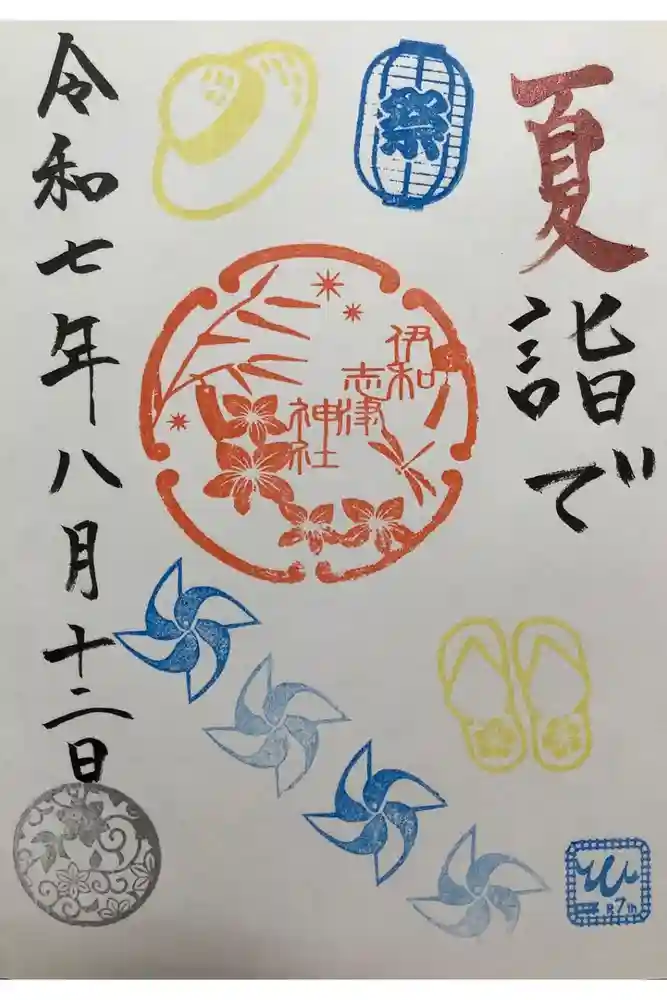 夏詣で
祭
伊和
志津
神社
令和七年八月十二日
R7th